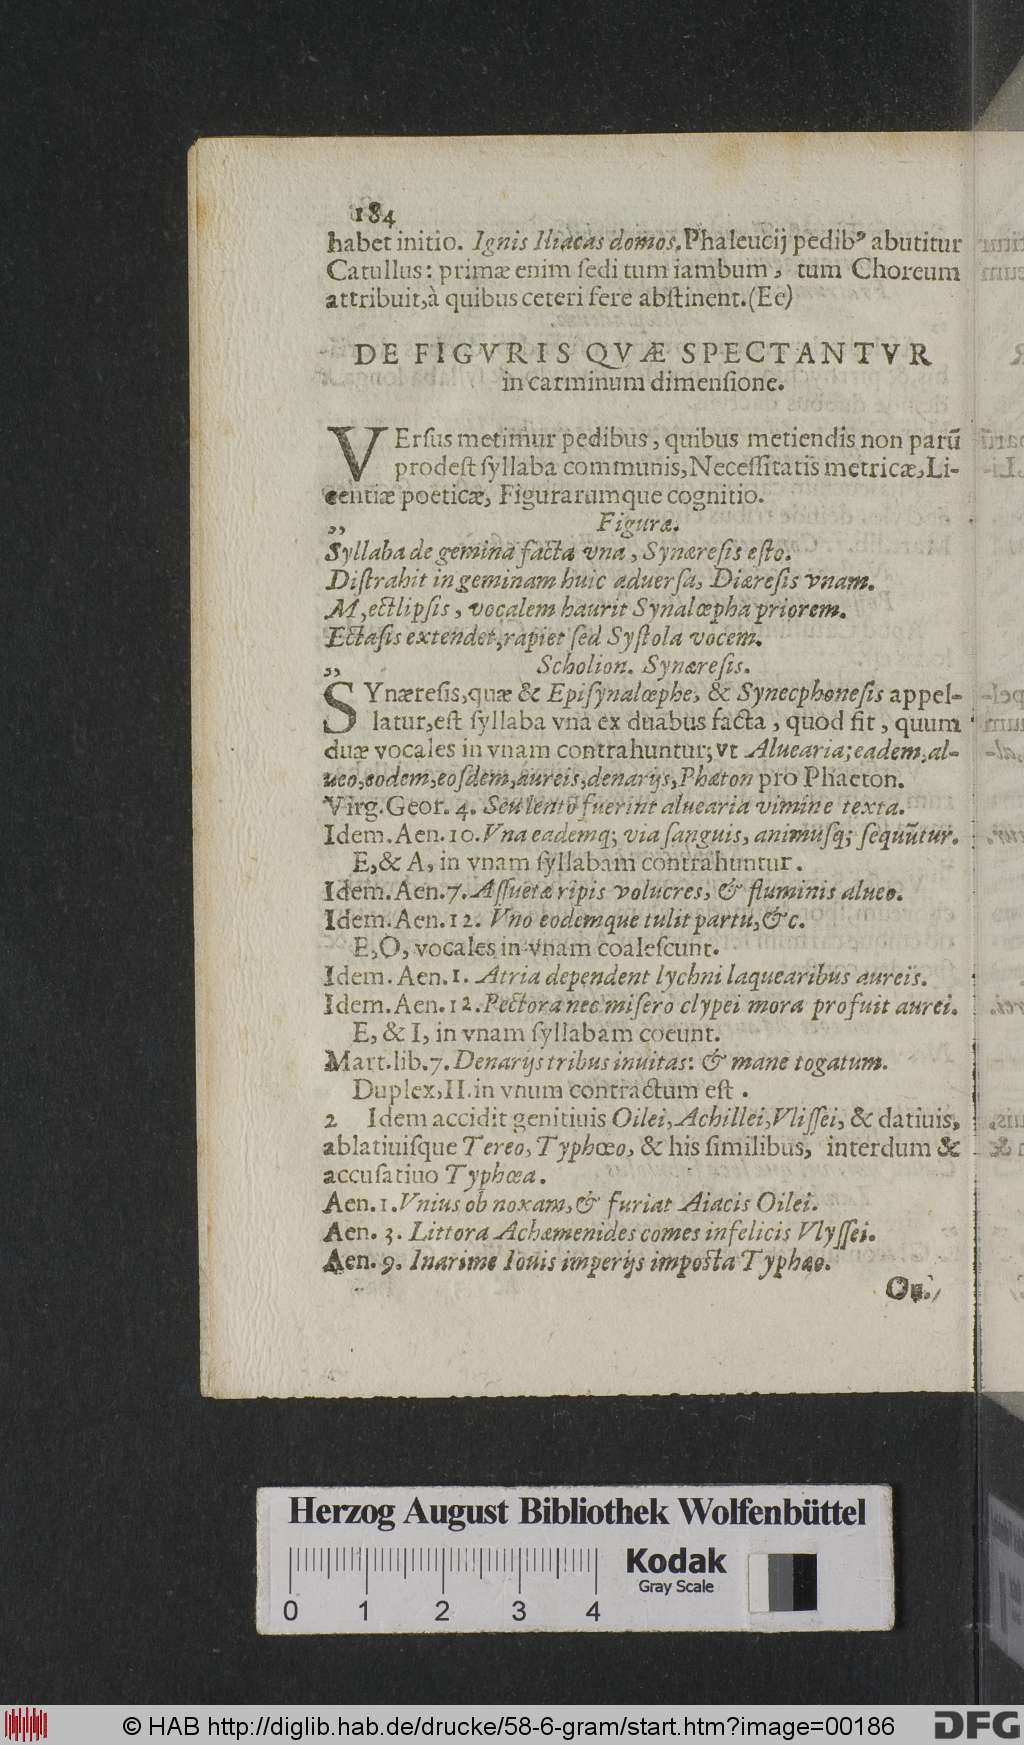 184
habet initio. Ignis Iliacas domos. Phaleucij pedibꝰ abutitur
Catullus: primæ enim ſedi tum iambum, tum Choreum
attribuit, à quibus ceteri fere abſtinent. (Ee)
DE FIGVRIS QVÆ SPECTANTVR
in carminum dimenſione.
VErſus metimur pedibus, quibus metiendis non parũ
prodeſt ſyllaba communis, Neceſſitatis metricæ, Li-
centiæ poeticæ, Figurarumque cognitio.
„ Figuræ.
Syllaba de gemina facta vna, Synæreſis eſto.
Diſtrahit in geminam huic aduerſa, Diæreſis vnam.
M, ectlipſis, vocalem haurit Synalœpha priorem.
Ectaſis extendet, rapiet ſed Syſtola vocem.
„ Scholion. Synæreſis.
SYnæreſis, quæ & Epiſynalœphe, & Synecphoneſis appel-
latur, eſt ſyllaba vna ex duabus facta, quod fit, quum
duæ vocales in vnam contrahuntur; vt Aluearia; eadem, al-
ueo, eodem, eoſdem, aureis, denarijs, Phæton pro Phaeton.
Virg. Geor. 4. Seu lento fuerint aluearia vimine texta.
Idem. Aen. 10. Vna eademq; via ſanguis, animuſq; ſequũtur.
E, & A, in vnam ſyllabam contrahuntur.
Idem. Aen. 7. Aſſuetæ ripis volucres, & fluminis alueo.
Idem. Aen. 12. Vno eodemque tulit partu, &c.
E, O, vocales in vnam coaleſcunt.
Idem. Aen. 1. Atria dependent lychni laquearibus aureis.
Idem. Aen. 12. Pectora nec miſero clypei mora profuit aurei.
E, & I, in vnam ſyllabam coeunt.
Mart. lib. 7. Denarijs tribus inuitas: & mane togatum.
Duplex, II. in vnum contractum eſt.
2 Idem accidit genitiuis Oilei, Achillei, Vliſſei, & datiuis,
ablatiuiſque Tereo, Typhœo, & his ſimilibus, interdum &
accuſatiuo Typhœa.
Aen. 1. Vnius ob noxam, & furiat Aiacis Oilei.
Aen. 3. Littora Achæmenides comes infelicis Vlyſſei.
Aen. 9. Inarime Iouis imperijs impoſta Typhæo.
Herzog August Bibliothek Wolfenbüttel
Kodak
Gray Scale
0 1 2 3 4
© HAB http://diglib.hab.de/drucke/58-6-gram/start.htm?image=00186
DFG